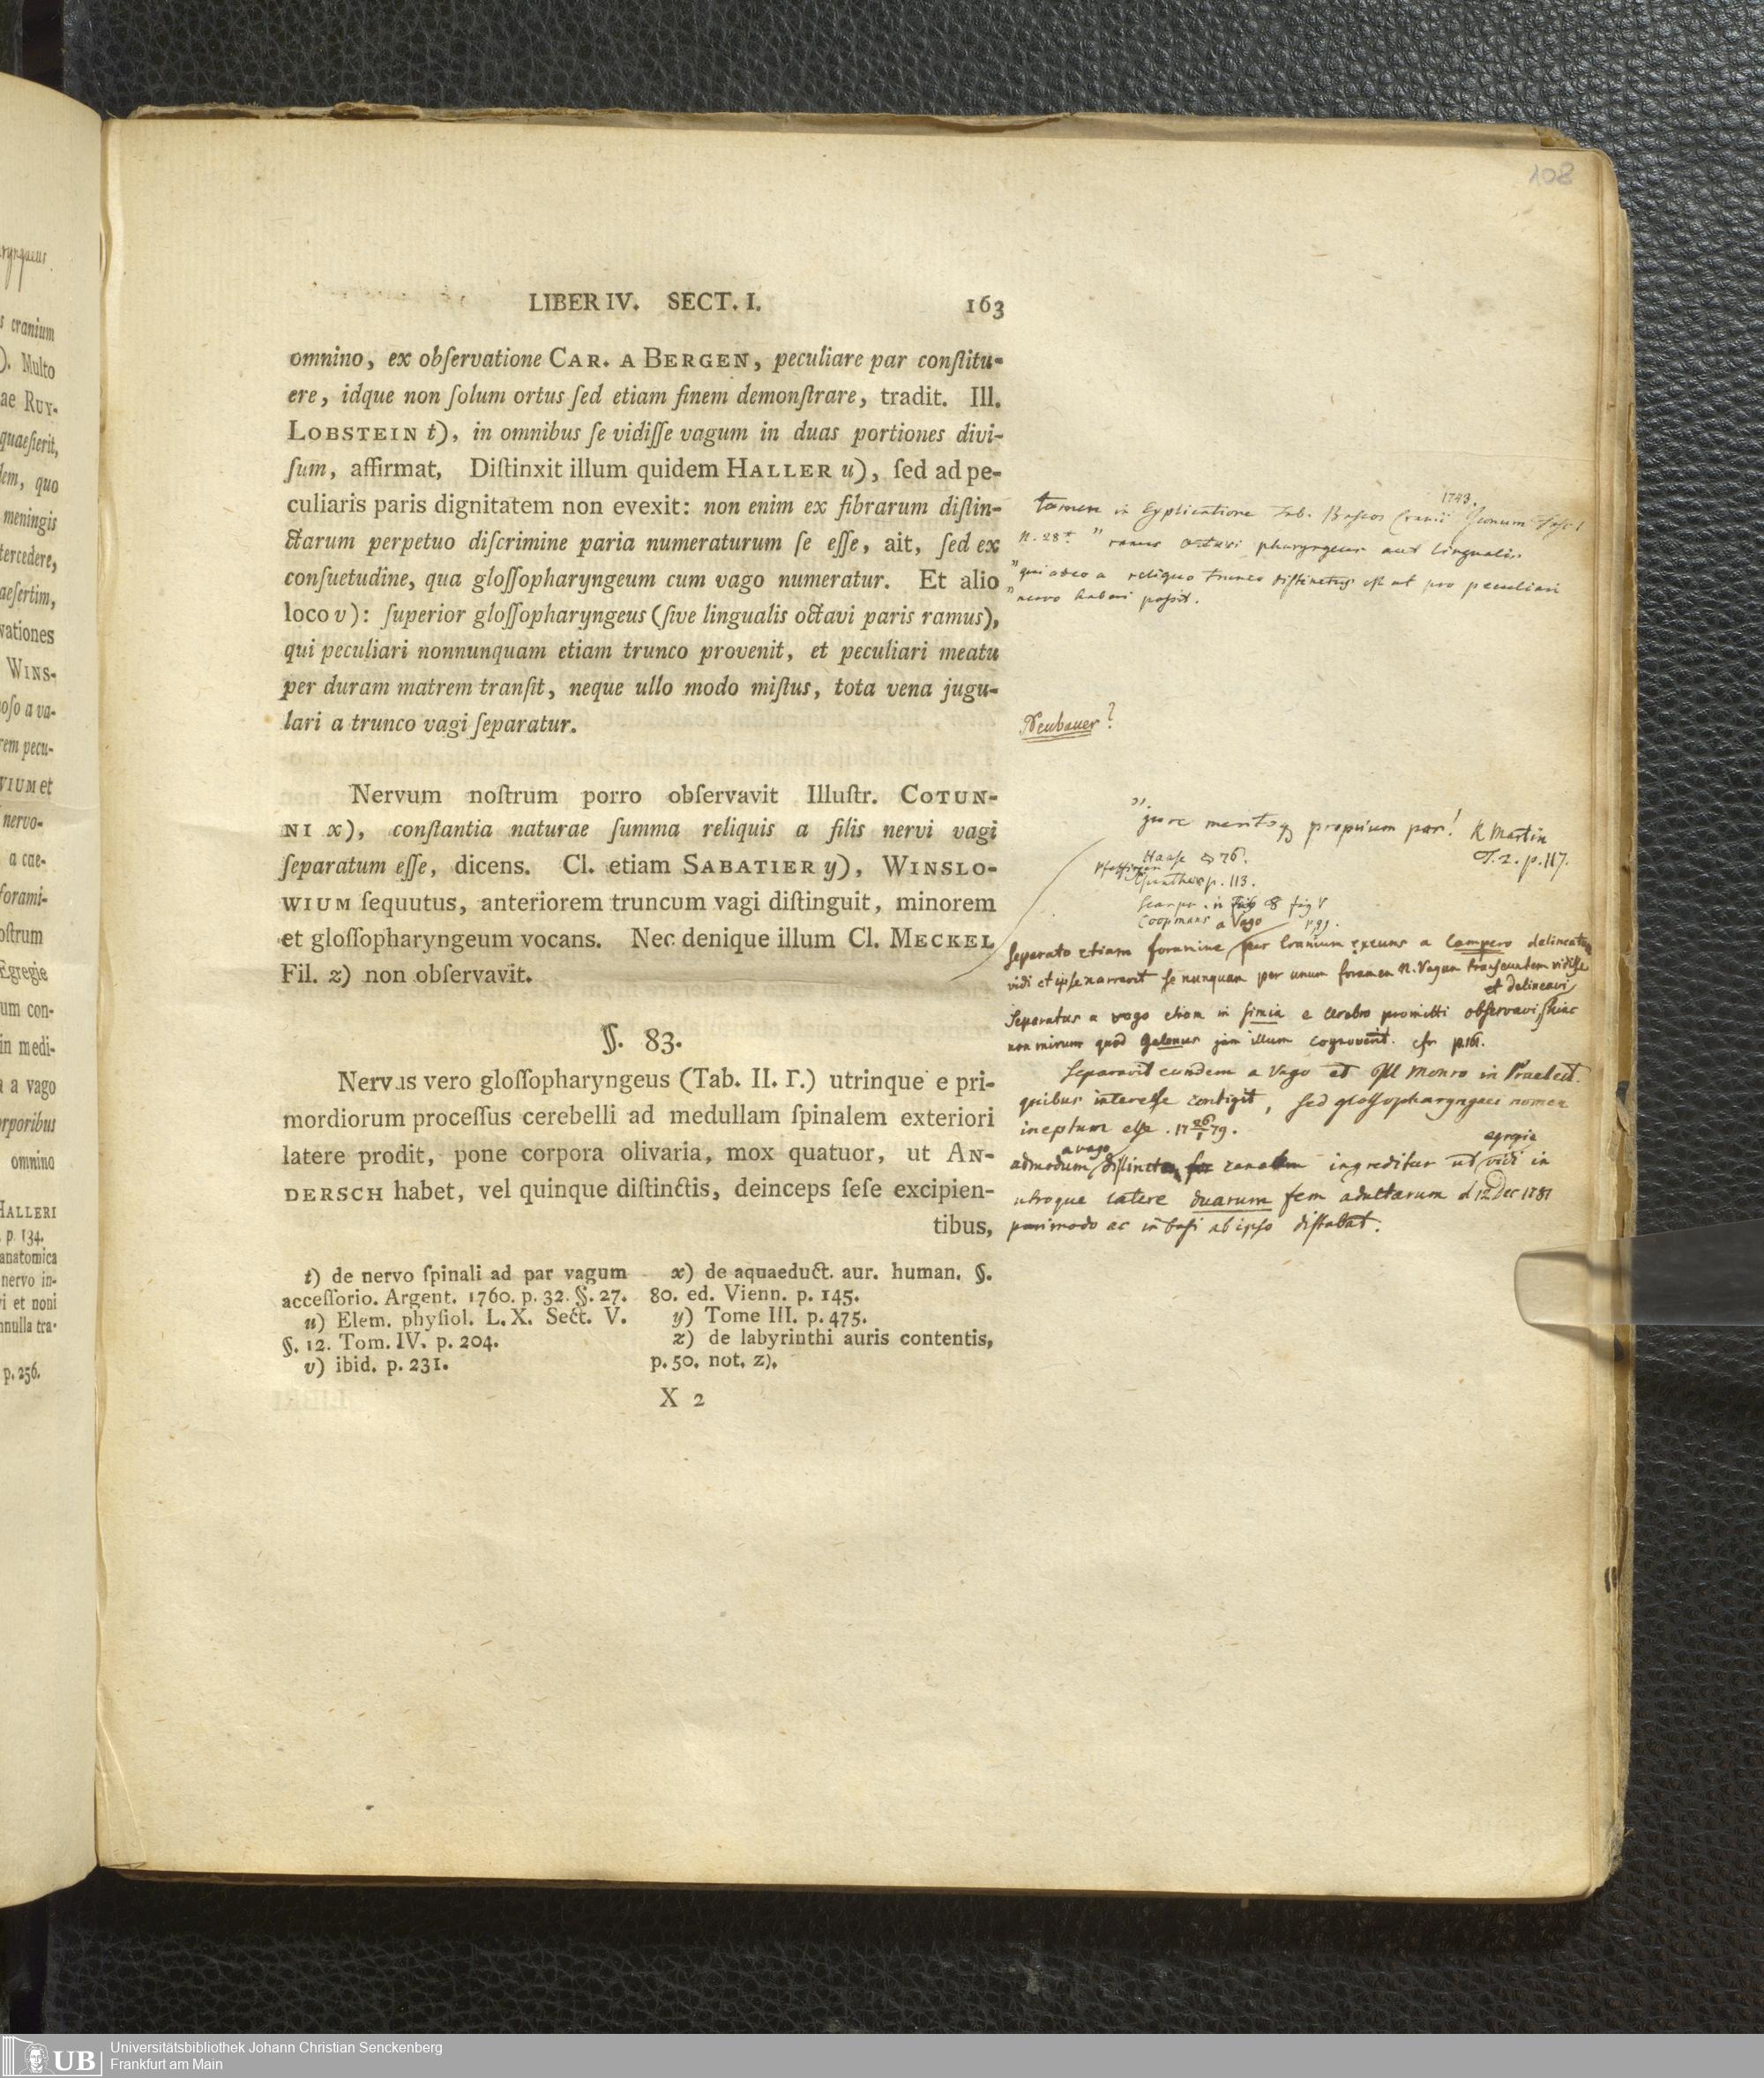 108
LIBER IV. SECT. I. 163
omnino, ex obſervatione CAR. A BERGEN, peculiare par conſtitu-
ere, idque non ſolum ortus ſed etiam finem demonſtrare, tradit. Ill.
LOBSTEIN t), in omnibus ſe vidiſſe vagum in duas portiones divi-
ſum, affirmat, Diſtinxit illum quidem HALLER u), ſed ad pe-
culiaris paris dignitatem non evexit: non enim ex fibrarum diſtin-
ctarum perpetuo diſcrimine paria numeraturum ſe eſſe, ait, ſed ex
conſuetudine, qua gloſſopharyngeum cum vago numeratur. Et alio
loco v): ſuperior gloſſopharyngeus (ſive lingualis octavi paris ramus),
qui peculiari nonnunquam etiam trunco provenit, et peculiari meatu
per duram matrem tranſit, neque ullo modo miſtus, tota vena jugu-
lari a trunco vagi ſeparatur.
Nervum noſtrum porro obſervavit Illuſtr. COTUN-
NI x), conſtantia naturae ſumma reliquis a filis nervi vagi
ſeparatum eſſe, dicens. Cl. etiam SABATIER y), WINSLO-
WIUM ſequutus, anteriorem truncum vagi diſtinguit, minorem
et gloſſopharyngeum vocans. Nec denique illum Cl. MECKEL
Fil. z) non obſervavit.
§. 83.
Nervus vero gloſſopharyngeus (Tab. II. Γ.) utrinque e pri-
mordiorum proceſſus cerebelli ad medullam ſpinalem exteriori
latere prodit, pone corpora olivaria, mox quatuor, ut AN-
DERSCH habet, vel quinque diſtinctis, deinceps ſeſe excipien-
tibus,
t) de nervo ſpinali ad par vagum
acceſſorio. Argent. 1760. p. 32. §. 27.
u) Elem. phyſiol. L. X. Sect. V.
§. 12. Tom. IV. p. 204.
v) ibid. p. 231.
x) de aquaeduct. aur. human. §.
80. ed. Vienn. p. 145.
y) Tome III. p. 475.
z) de labyrinthi auris contentis,
p. 50. not. z).
X 2
1743.
tamen in Explicatione Tab. Baſeos Cranii Iconum Faſc I
n. 28. " ramus octavi pharyngeus aut lingualis
" qui adeo a reliquo trunco diſtinctus eſt ut pro peculiari
" nervo haberi poſſit.
Neubauer?
" jure meritoq proprium par! R Martin
T. 2. p. 117.
Haaſe p 76.
Günther p. 113.
Scarpa in Tab 8 fig V
Coopmans a Vago p. 99.
Separato etiam foramine per Cranium exeuns a Campero
vidi et ipſe narravit ſe nunquam per unum foramen N. Vagum tranſeuntem vidiſſe
et delineavi
Separatus a vago etiam in ſimia e cerebro promitti obſervavi, hinc
non mirum quod Galenus jam illum cognoverit. cfr p. 161.
Separavit eundem a Vago et Ill Monro in Praelect.
quibus intereſſe contigit, ſed gloſſopharyngaei nomen
ineptum eſſe.
a vago egregie
admodum ingreditur ut vidi in
utroque latere duarum fem adultarum d 12 Dec 1781
pari modo ac in baſi ab ipſo diſtabat.
ryngaeus
s cranium
). Multo
ae RUY-
quaeſierit,
dem, quo
meningis
tercedere,
aeſertim,
vationes
WINS-
oſo a va-
rem pecu-
VIUM et
nervo-
a cae-
forami-
oſtrum
Egregie
um con-
in medi-
a vago
rporibus
omnino
HALLERI
p. 134.
anatomica
nervo in-
vi et noni
nnulla tra-
p. 256.
UB
Universitätsbibliothek Johann Christian Senckenberg
Frankfurt am Main